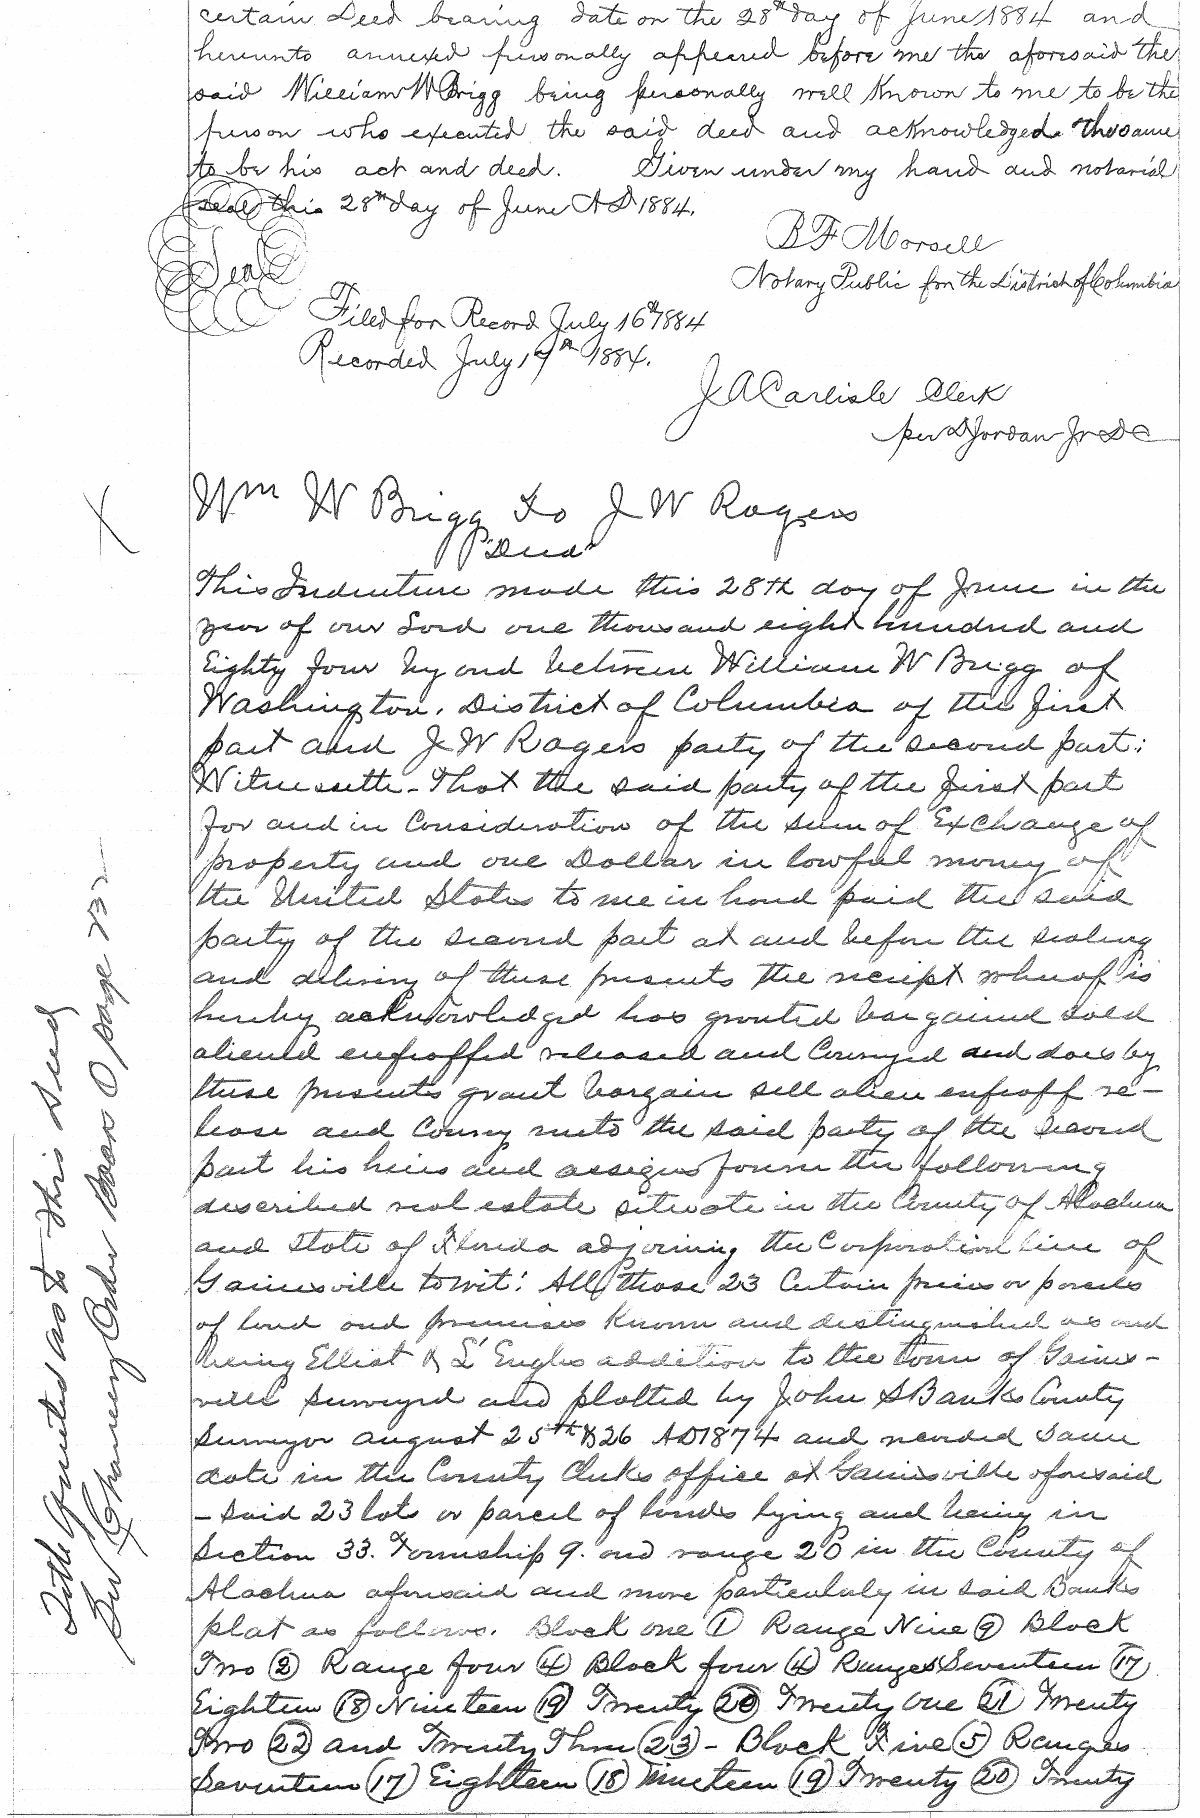 certain Deed bearing date on the 28th day of June 1884 and
hereunto annexed personally appeared before me the aforesaid the
said William W Brigg being personally well Known to me to be the
person who executed the said deed and acknowledged the same
to be his act and deed. Given under my hand and notarial
seal this 28th day of June A D 1884.
B F Morsell
Seal
Notary Public for the District of Columbia
Filed for Record July 16th 1884
Recorded July 17th 1884.
J A Carlisle Clerk
per D Jordan Jr D C
Wm W Brigg To J W Rogers
"Deed"
This Indenture made this 28th day of June in the
year of our Lord one thousand eight hundred and
Eighty four by and between William W Brigg of
Washington. District of Columbia of the first
part and J W Rogers party of the second part:
Witnesseth - That the said party of the first part
for and in Consideration of the sum of Exchange of
property and one Dollar in lawful money of
the United States to me in hand paid the said
party of the second part at and before the sealing
and delivery of these presents the receipt whereof is
hereby acknowledged has granted bargained sold
aliened enfeoffed released and Conveyed and does by
these presents grant bargain sell alien enfeoff re-
lease and Convey unto the said party of the second
part his heirs and assigns forever the following
described real estate situate in the County of Alachua
and State of Florida adjoining the Corporation line of
Gainesville to wit: All those 23 Certain pieces or parcels
of land and premises Known and distinguished as and
being Elliot & L'Engles addition to the town of Gaines-
ville surveyed and platted by John S Banks County
Surveyor august 25th & 26 AD 1874 and recorded same
date in the County Clerks office at Gainesville aforesaid
- Said 23 lots or parcel of lands lying and being in
Section 33. Township 9. and range 20 in the County of
Alachua aforesaid and more particularly in said Banks
plat as follows. Block one (1) Range Nine (9) Block
Two (2) Range four (4) Block four (4) Ranges Seventeen (17)
Eighteen (18) Nineteen (19) Twenty (20) Twenty one (21) Twenty
Two (22) and Twenty Three (23) - Block Five (5) Ranges
Seventeen (17) Eighteen (18) Nineteen (19) Twenty (20) Twenty
X
Title Quieted as to this Deed
See Chancery Order Book O page 732